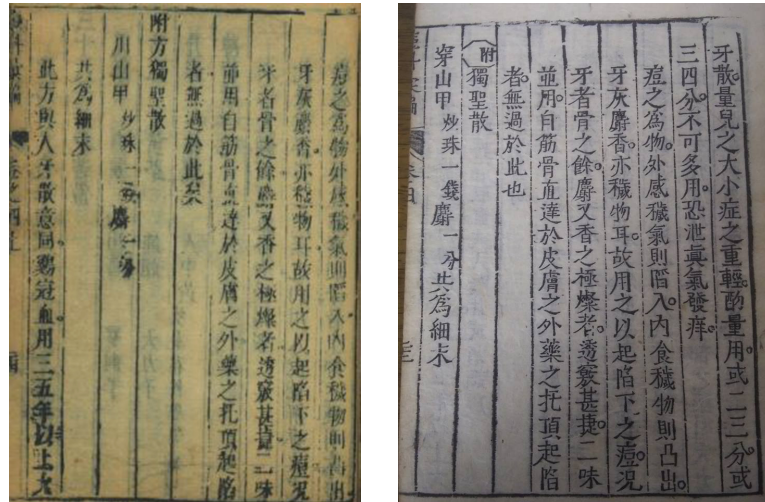 痘之爲物外感穢氣則陷入內食穢物則凸出
牙灰麝香亦穢物耳故用之以起陷下之痘况
牙者骨之餘麝又香之極燥者透竅甚捷二味
並用自筋骨直達於皮膚之外藥之托頂起陷
者無過於此矣
附方獨聖散
川山甲 炒珠一錢 麝一分
共爲細末
此方與人牙散意同鷄冠血用三五年以上大
牙散量兒之大小症之重輕酌量用或二三分或
三四分不可多用恐泄眞氣發痒
痘之爲物外感穢氣則陷入內食穢物則凸出
牙灰麝香亦穢物耳故用之以起陷下之痘况
牙者骨之餘麝又香之極燥者透竅甚捷二味
並用自筋骨直達於皮膚之外藥之托頂起陷
者無過於此也
附 獨聖散
穿山甲 炒珠一錢 麝一分 共爲細末